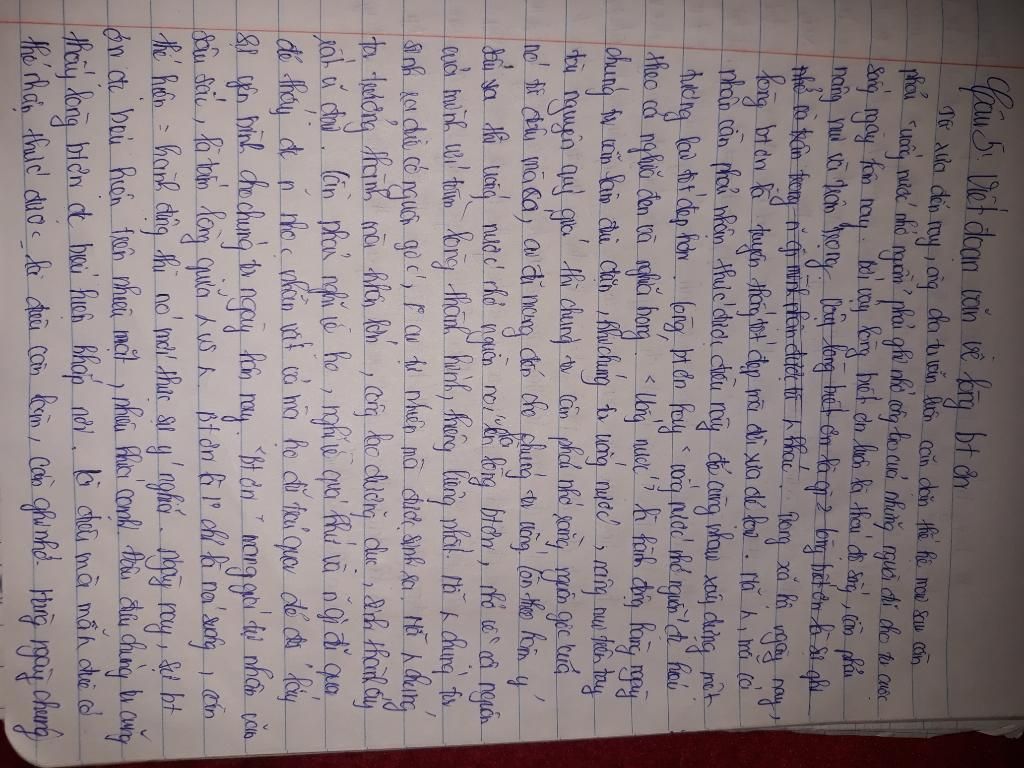 Câu 5: Viết đoạn văn về lòng bt ơn
Từ xưa đến nay, ông cha ta luôn luôn căn dặn thế hệ mai sau cần
phải "uống nước nhớ nguồn" phải ghi nhớ công lao của những người đi cho ta cuộc
sống ngày hôm nay. Bởi vậy lòng biết ơn luôn là thái độ sống, cần phải
nâng niu và trân trọng. Vậy lòng biết ơn là gì? Lòng biết ơn là sự ghi
nhớ và trân trọng n gì mình nhận được từ khác. Trong xã hội ngày nay,
lòng bt ơn là truyền thống tốt đẹp mà đi xưa để lại. Mỗi ta, mỗi cá
nhân cần phải nhận thức được điều này để cùng nhau xây dựng một
tương lai tốt đẹp hơn. Lòng bt ơn hay "uống nước nhớ nguồn" đc hiểu
theo cả nghĩa đen và nghĩa bóng. "Uống nước" là hành động hàng ngày
chúng ta vẫn làm, khi chúng ta uống nước, nâng niu trên tay
tài nguyên quý giá thì chúng ta cần phải nhớ xem nguồn gốc của
nó từ đâu mà có, ai đã mang đến cho chúng ta uống. Còn theo hàm ý,
sâu xa thì uống nước nhớ nguồn nói đến lòng bt ơn, nhớ về cội nguồn
của mình với tấm lòng thành kính, thiêng liêng nhất. Mỗi chúng ta
sinh ra đều có nguồn gốc, ko ai tự nhiên mà được sinh ra. Mỗi chúng
ta trưởng thành mà khôn lớn, công lao dưỡng dục, sinh thành ấy
rất vĩ đại. Cần phải nghĩ về họ, nghĩ về quá khứ và n gì đã qua
để thấy đc n nhọc nhằn vất vả mà họ đã trải qua để đổi lấy
sự yên bình cho chúng ta ngày hôm nay. "Bt ơn" mang giá trị nhân văn
sâu sắc, là tấm lòng giữa với. Bt ơn ko chỉ là nói suông, cần
thể hiện = hành động thì nó mới thực sự ý nghĩa. Ngày nay, sự bt
ơn đc biểu hiện trên nhiều mặt, nhiều khía cạnh. Ở đâu chúng ta cũng
thấy lòng bt ơn đc biểu hiện khắp nơi. Là điều mà mỗi đều có
thể nhận thức được là điều cần làm, cần ghi nhớ. Hàng ngày chúng